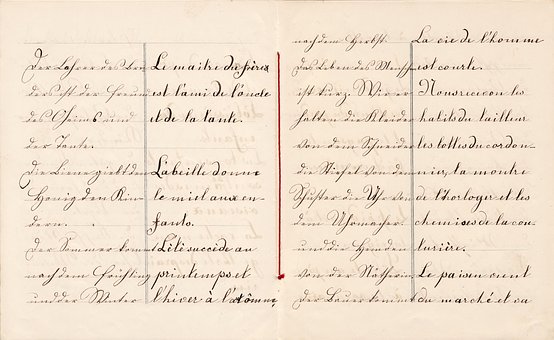 Der Lehrer des Bru
ders ist der Freund
des Oheims und
der Tante.
Die Biene gibt den
Honig den Kin-
dern.
Der Sommer kommt
nach dem Frühling
und der Winter
Le maitre du frère
est l'ami de l'oncle
et de la tante.
L'abeille donne
le miel aux en-
fants.
L'été succède au
printemps et
l'hiver à l'automne,
nach dem Herbst.
Das Leben des Mensch
ist kurz. Wir er-
halten die Kleider
von dem Schneider
die Stiefel von dem
Schuster die Uhr von
dem Uhrmacher
und die Hemden
von der Nätherin
Der Bauer kommt
La vie de l'homme
est courte.
Nous recevons les
habits du tailleur
les bottes du cordon-
nier, la montre
de l'horloger et les
chemises de la cou-
turière.
Le paisan vient
du marché et va